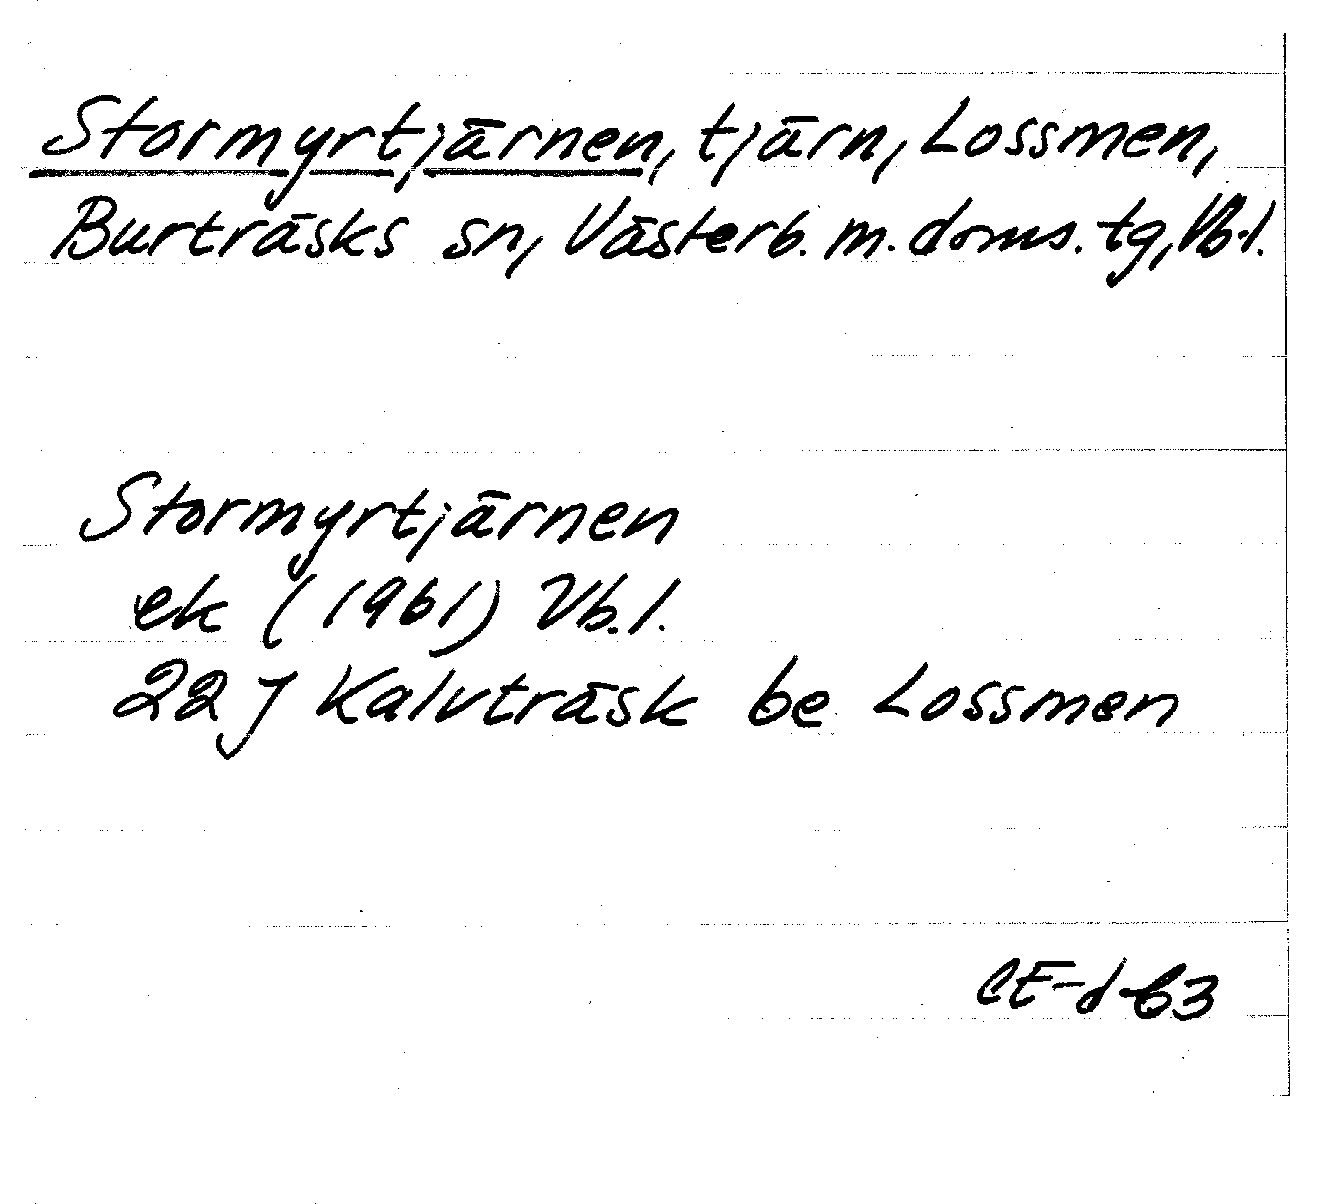 Stormyrtjärnen, tjärn, Lossmen,
Burträsks sn, Västerb. m. doms. tg, Vb.l.
Stormyrtjärnen
ek (1961) Vb.l.
22 J Kalvträsk be Lossmen
CE-d-63